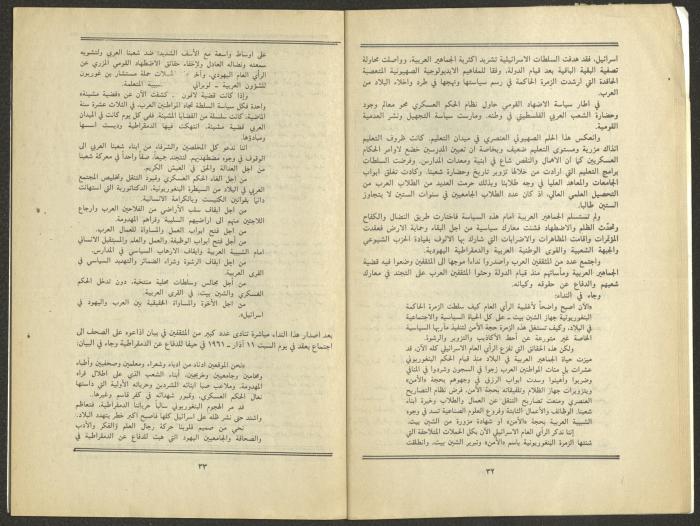 اسرائيل. فقد هدفت السلطات الاسرائيلية تشريد اكثرية الجماهير العربية. وواصلت محاولة
تصفية البقية الباقية بعد قيام الدولة. وفقا للمفاهيم الايديولوجية الصهيونية المتعصبة
الحاقدة التي ارشدت الزمرة الحاكمة في رسم سياستها ونهجها في طرد واخلاء البلاد من
العرب.
في أطار سياسة الاضهاد القومي حاول نظام الحكم العسكري محو معالم وجود
وحضارة الشعب العربي الفلسطيني في وطنه. ومارست سياسة التجهيل ونشر العدمية
القومية.
وانعكس هذا الحلم الصهيوني العنصري في ميدان التعليم. كانت ظروف التعليم
انذاك مزرية ومستوى التعليم ضعيف وبخاصة ان تعيين المدرسين خضع لاوامر الحكام
العسكريين كما ان الاهمال والنقص شاع في ابنية ومعدات المدارس. وفرضت السلطات
برامج التعليم التي ارادت من خلالها تزوير تاريخ وحضارة شعبنا. وكادت تغلق ابواب
الجامعات والمعاهد العليا في وجه طلابنا وبذلك حرمت العديد من الطلاب العرب من
التحصيل العلمي العالي. اذ كان عدد الطلاب الجامعيين في سنوات الستين لا يتجاوز
الستين طالبا.
ولم تستسلم الجماهير العربية أمام هذه السياسة فاختارت طريق النضال والكفاح
وتحدّت الظلم والاضطهاد فشنت معارك سياسية من اجل البقاء وحماية الارض فعقدت
المؤتمرات واقامت المظاهرات والاضرابات التي شارك بها الالوف بقيادة الحزب الشيوعي
والجبهة الشعبية والقوى الوطنية العربية والديمقراطية اليهودية.
واجتمع عدد من المثقفين العرب وأصدروا نداءا موجها الى المثقفين وضعوا فيه قضية
الجماهير العربية ومأساتهم منذ قيام الدولة وحثوا المثقفين العرب على التجند في معارك
شعبهم والدفاع عن حقوقه وكيانه.
وجاء في النداء:
«الآن اصبح واضحاً لأغلبية الرأي العام كيف سلطت الزمرة الحاكمة
البنغوريونية جهاز الشين بيت ـ على كل الحياة السياسية والاجتماعية
في البلاد، وكيف تستغل هذه الزمرة حجة الأمن لتنفيذ مآربها السياسية
الخاصة غير متورعة عن أحط الأكاذيب والتزوير والرشوة.
ولكن هذه الحقائق التي تفزع الرأي العام الاسرائيلي كله الآن، قد
ميزت حياة الجماهير العربية في البلاد منذ قيام الحكم البنغوريوني
عشرات بل مئات المواطنين العرب زجوا في السجون وشردوا في المنافي
وضربوا وأهينوا وسدت ابواب الرزق في وجوههم بحجة «الأمن»
وبتزويرات جهاز الظلام وتلفيقاته بحجة الأمن. فرض نظام التصاريح
العنصري ومنعت تصاريح التنقل عن العمال والطلاب وخيرة ابناء
شعبنا. الوظائف والأعمال الثابتة وفروع العلوم الصناعية تسد في وجوه
الشبيبة العربية بحجة «الأمن» أو شهادة مزورة من الشين بيت.
إننا نذكر الرأي العام الاسرائيلي الآن بكل الحملات المتلاحقة التي
شنتها الزمرة البنغوريونية باسم «الأمن» وتبرير الشين بيت. وانطلقت
٣٢
على اوساط واسعة مع الأسف الشديد! ضد شعبنا العربي ولتشويه
سمعته ونضاله العادل ولاخفاء حقائق الاضطهاد القومي المزري عن
الرأي العام اليهودي. حملة مستشار بن غوريون
للشؤون العربية ـ لوبراني المتعلمة.
وإذا كانت قضية لافون كشفت الآن عن «قضية مشينة»
واحدة فكل سياسة السلطة تجاه المواطنين العرب. في الثلاث عشرة سنة
الماضية، كانت سلسلة من القضايا المشينة. ففي كل يوم كانت في الميدان
العربي قضية مشينة، انتهكت فيها الديمقراطية وديست اسسها
ومبادؤها.
اننا ندعو كل المخلصين والشرفاء من ابناء شعبنا العربي الى
الوقوف في وجوه مضطهديهم. لنتجند جميعاً، صفاً واحداً في معركة شعبنا
من اجل العدالة والحق في العيش الكريم.
من اجل الغاء الحكم العسكري وقيود التنقل وتخليص المجتمع
العربي في البلاد من السيطرة البنغوريونية، الدكتاتورية التي استهانت
دائما بقوانين الكنيست وبالكرامة الانسانية.
من اجل ايقاف سلب الأراضي من الفلاحين العرب وارجاع
اللاجئين منهم الى اراضيهم السليبة وقراهم المهدومة.
من اجل فتح ابواب العمل والمساواة للعمال العرب.
من أجل فتح ابواب الوظيفة والعمل والعلم والمستقبل الانساني
امام الشبيبة العربية وايقاف الارهاب السياسي في المدارس.
من اجل ايقاف الرشوة وشراء الضمائر والتهديد السياسي في
القرى العربية.
من أجل مجالس وسلطات محلية منتخبة، دون تدخل الحكم
العسكري والشين بيت، في القرى العربية.
من اجل الأخوة والمساواة الحقيقية بين العرب واليهود في
اسرائيل».
بعد اصدار هذا النداء مباشرة تنادى عدد كبير من المثقفين في بيان اذاعوه على الصحف الى
اجتماع يعقد في يوم السبت ١١ آذار ـ ١٩٦١ في حيفا للدفاع عن الديمقراطية وجاء في البيان:
«نحن الموقعين ادناه من ادباء وشعراء ومعلمين وصحفيين وأطباء
ومحامين وجامعيين وخريجين. أبناء الشعب الذي على اطلال قراه
المهدومة. وملاعب صبا ابنائه المشردين وحرياته الأولية التي داستها
نعال الحكم العسكري. وقبور شهدائه في كفر قاسم وغيرها.
قد مر الهجوم البنغوريوني سالباً حرياتنا الديمقراطية. فتعاظم
واشتد حتى نشر ظله على اسرائيل كلها فأصبح اكبر خطر يتهدد البلاد.
نحيي من صميم قلوبنا حركة رجال العلم والفكر والأدب
والصحافة والجامعيين اليهود التي هبت للدفاع عن الديمقراطية في
٣٣